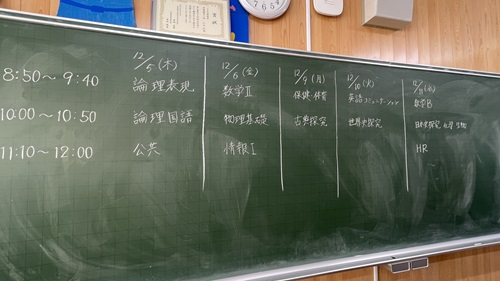 12/5(木) 12/6(金) 12/9(月) 12/10(火) 12/11(水)
8:50～9:40 論理表現 数学Ⅱ 保健・体育 英語コミュニケーション 数学B
10:00～10:50 論理国語 物理基礎 古典探究 世界史探究 日本史探究 化学 生物
11:10～12:00 公共 情報Ⅰ HR